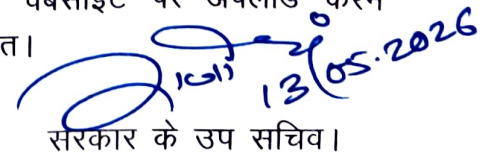 वेबसाइट पर अपलोड करने
त।
13/05.2026
सरकार के उप सचिव।